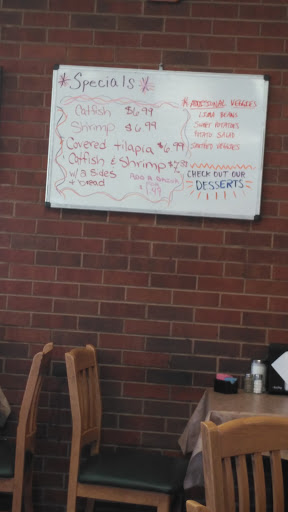 *Specials*
Catfish $6.99
Shrimp $6.99
Covered tilapia $6.99
Catfish & Shrimp
w/2 sides
+ bread
ADDITIONAL VEGGIES
LIMA BEANS
SWEET POTATOES
POTATO SALAD
VEGGIES
CHECK OUT OUR
DESSERTS